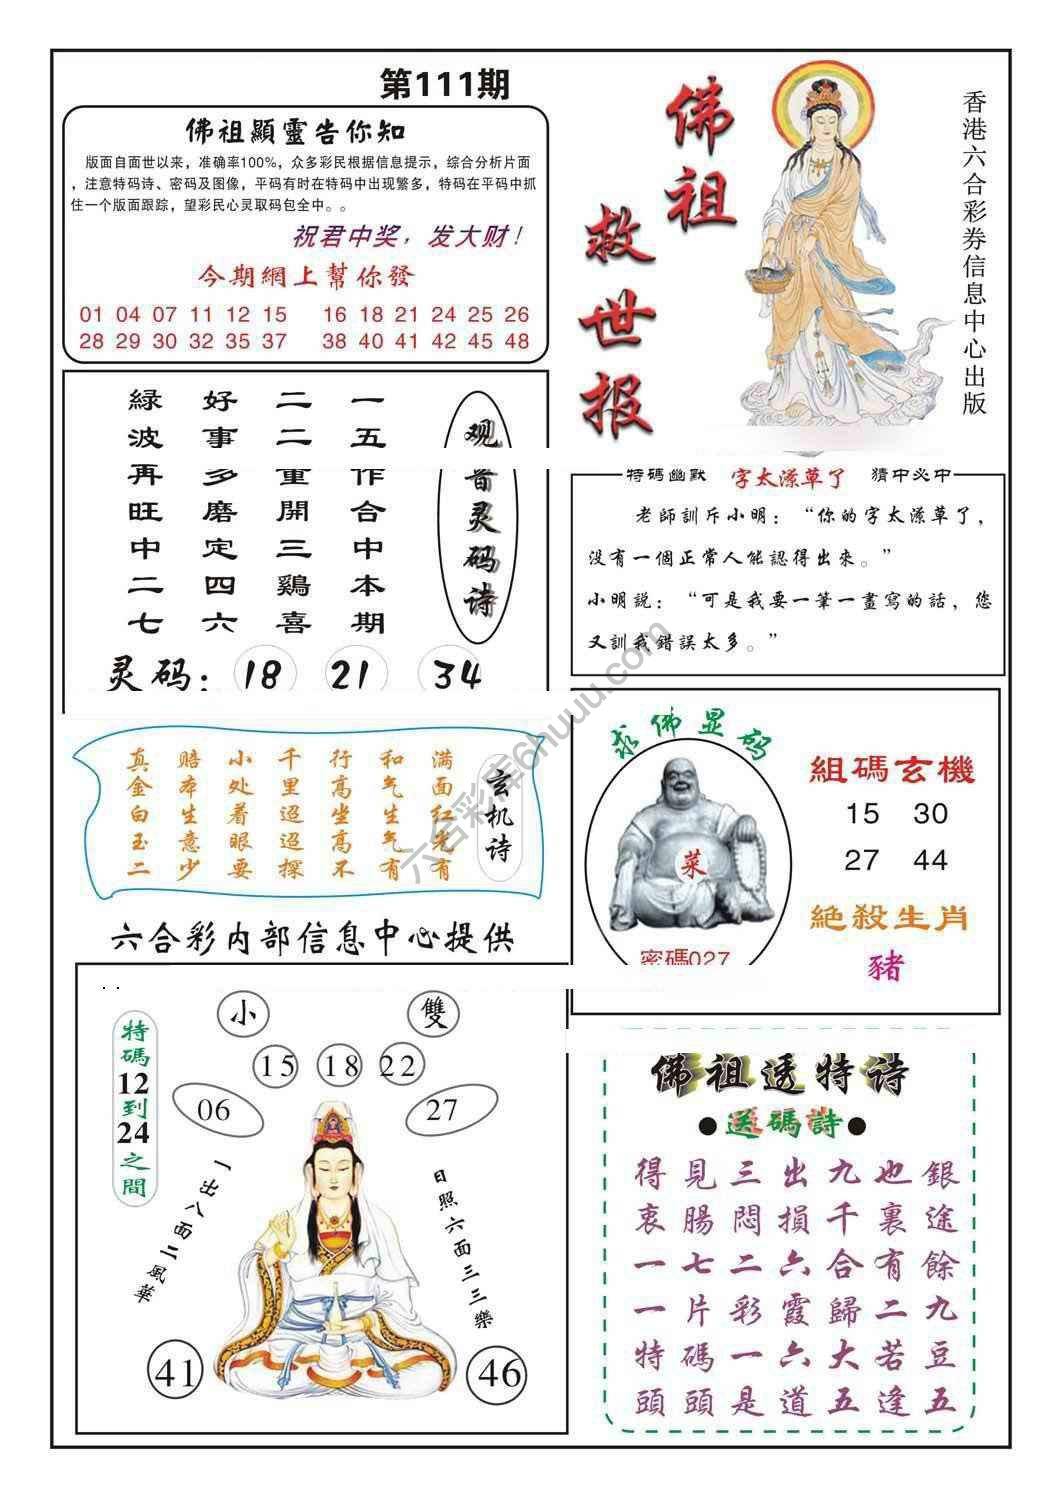 第111期
佛祖顯靈告你知
版面自面世以来，准确率100%，众多彩民根据信息提示，综合分析片面
，注意特码诗、密码及图像，平码有时在特码中出现繁多，特码在平码中抓
住一个版面跟踪，望彩民心灵取码包全中。。
祝君中奖，发大财！
今期網上幫你發
01 04 07 11 12 15 16 18 21 24 25 26
28 29 30 32 35 37 38 40 41 42 45 48
佛祖
救世报
香港六合彩券信息中心出版
观音灵码诗
一五作合中本期
二二重開三鷄喜
好事多磨定四六
緑波再旺中二七
灵码：18 21 34
特碼幽默 字太潦草了 猜中必中
老師訓斥小明：“你的字太潦草了，
没有一個正常人能認得出來。”
小明説：“可是我要一筆一畫寫的話，您
又訓我錯誤太多。”
玄机诗
满面红光有
和气生气有
行高坐高不
千里迢迢探
小处着眼要
赔本生意少
真金白玉二
求佛显码
菜
密碼027
組碼玄機
15 30
27 44
絶殺生肖
豬
六合彩内部信息中心提供
小 雙
15 18 22
06 27
特碼12到24之間
一出八面二風華
日照六面三三樂
41 46
佛祖透特诗
●送碼詩●
得見三出九也銀
衷腸悶損千裏途
一七二六合有餘
一片彩霞歸二九
特碼一六大若豆
頭頭是道五逢五
六合彩库6huuu.com